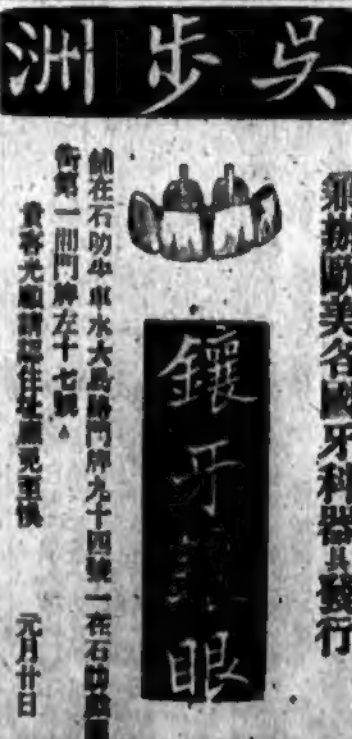 吳步洲
兼辦歐美各國牙科器具發行
鑲牙鑲眼
舖在石叻牛車水大馬路門牌九十四號一在石叻
街第一間門牌左十七號
貴客光顧請認住址
元月廿日